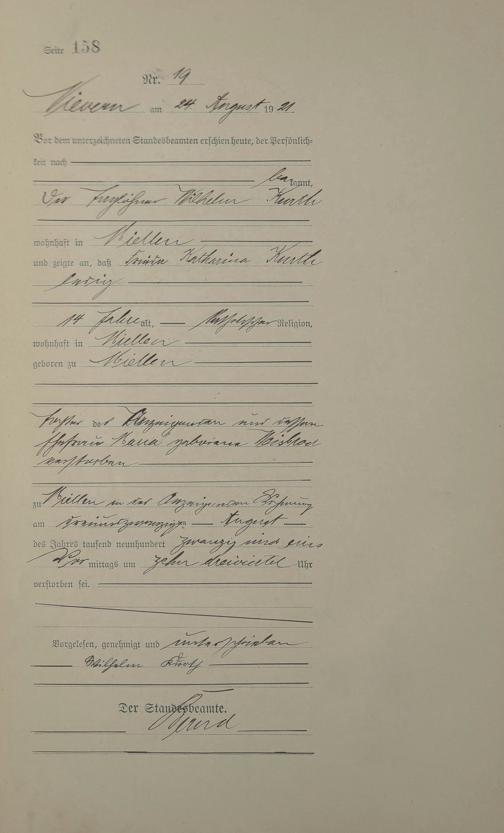 Seite 158
Nr. 19
Nievern am 24 August 1921.
Vor dem unterzeichneten Standesbeamten erschien heute, der Persönlich-
keit nach
bekannt,
Der Taglöhner Wilhelm Kurth
wohnhaft in Miellen
und zeigte an, daß Katharina Kurth
ledig
14 Jahre alt, Katholischer Religion,
wohnhaft in Miellen
geboren zu Miellen
Tochter des Anzeigenden und dessen
Ehefrau Maria geborene
verstorben
zu Miellen in des Anzeigenden Wohnung
am dreiundzwanzigsten August
des Jahres tausend neunhundert zwanzig und eins
Vor mittags um zehn dreiviertel Uhr
verstorben sei.
Vorgelesen, genehmigt und unterschrieben
Wilhelm Kurth
Der Standesbeamte.